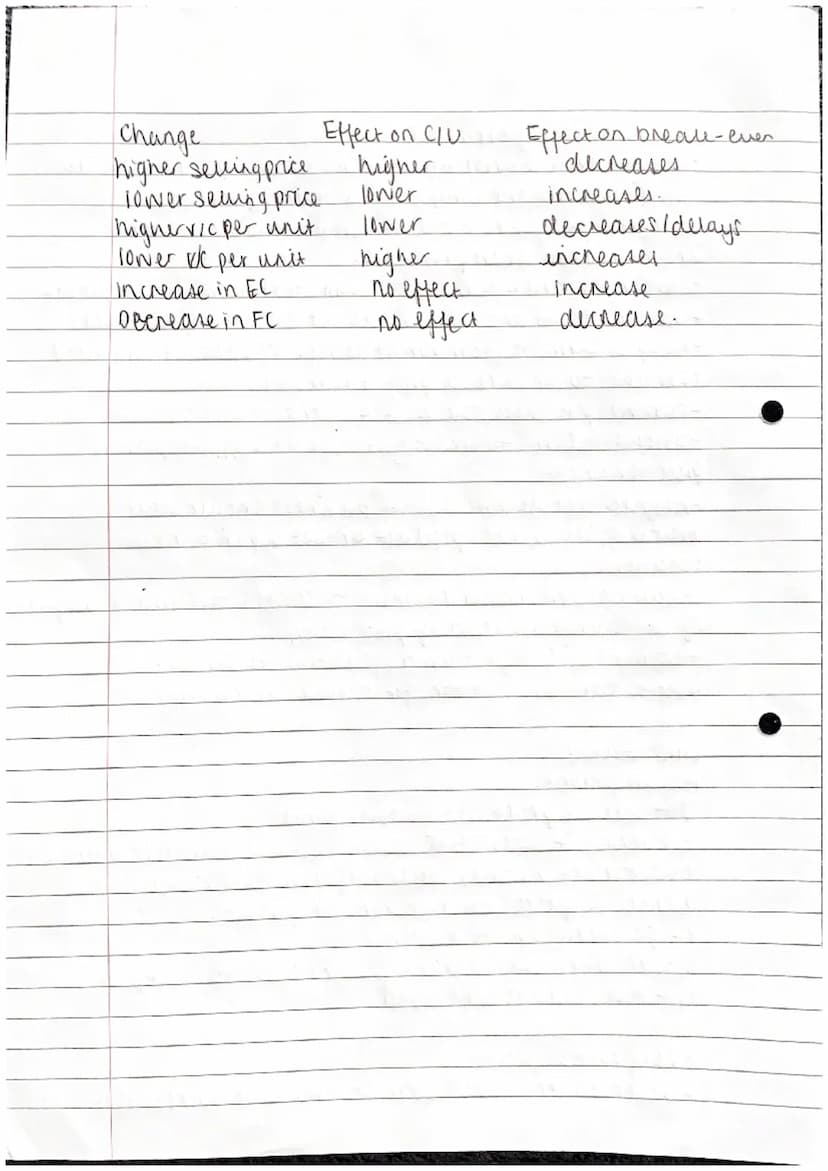 Change Effect on C/U Effect on break-even
higher selling price higher decreases
lower selling price lower increases.
higher v/c per unit lower decreases/delays
lower v/c per unit higher increases
Increase in FC no effect increase
Decrease in FC no effect decrease.